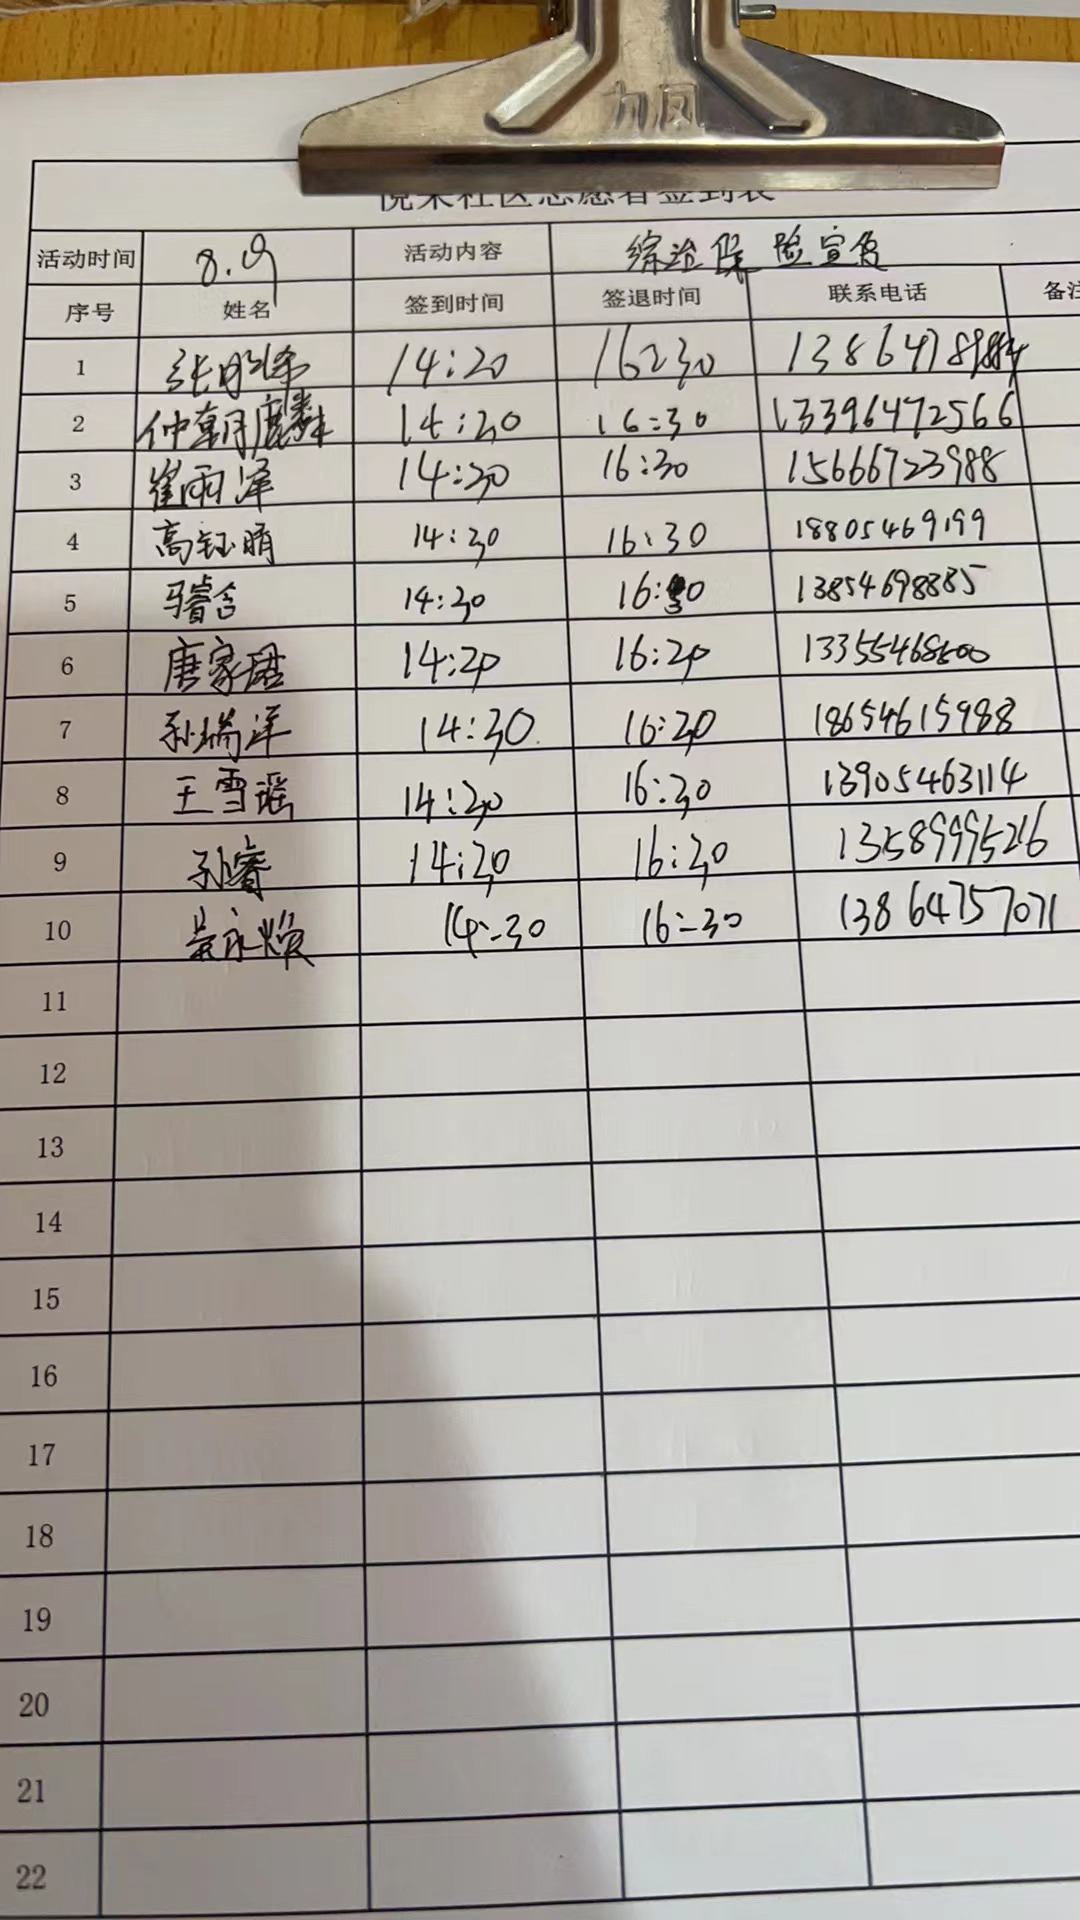 力风
悦来社区志愿者签到表
活动时间 8.9 活动内容 综治保险宣传
序号 姓名 签到时间 签退时间 联系电话 备注
1 14:20 16:30
2 仲朝麟 14:30 16:30 13396472566
3 崔雨泽 14:30 16:30 15666723988
4 高钰晴 14:30 16:30 18805469199
5 马睿含 14:30 16:30 13854698885
6 唐家珺 14:20 16:20 13355468600
7 孙瑞泽 14:30 16:30 18654615988
8 王雪瑶 14:30 16:30 13905463114
9 孙睿 14:30 16:30 13589995216
10 吴永焕 14:30 16:30 13864757071
11
12
13
14
15
16
17
18
19
20
21
22